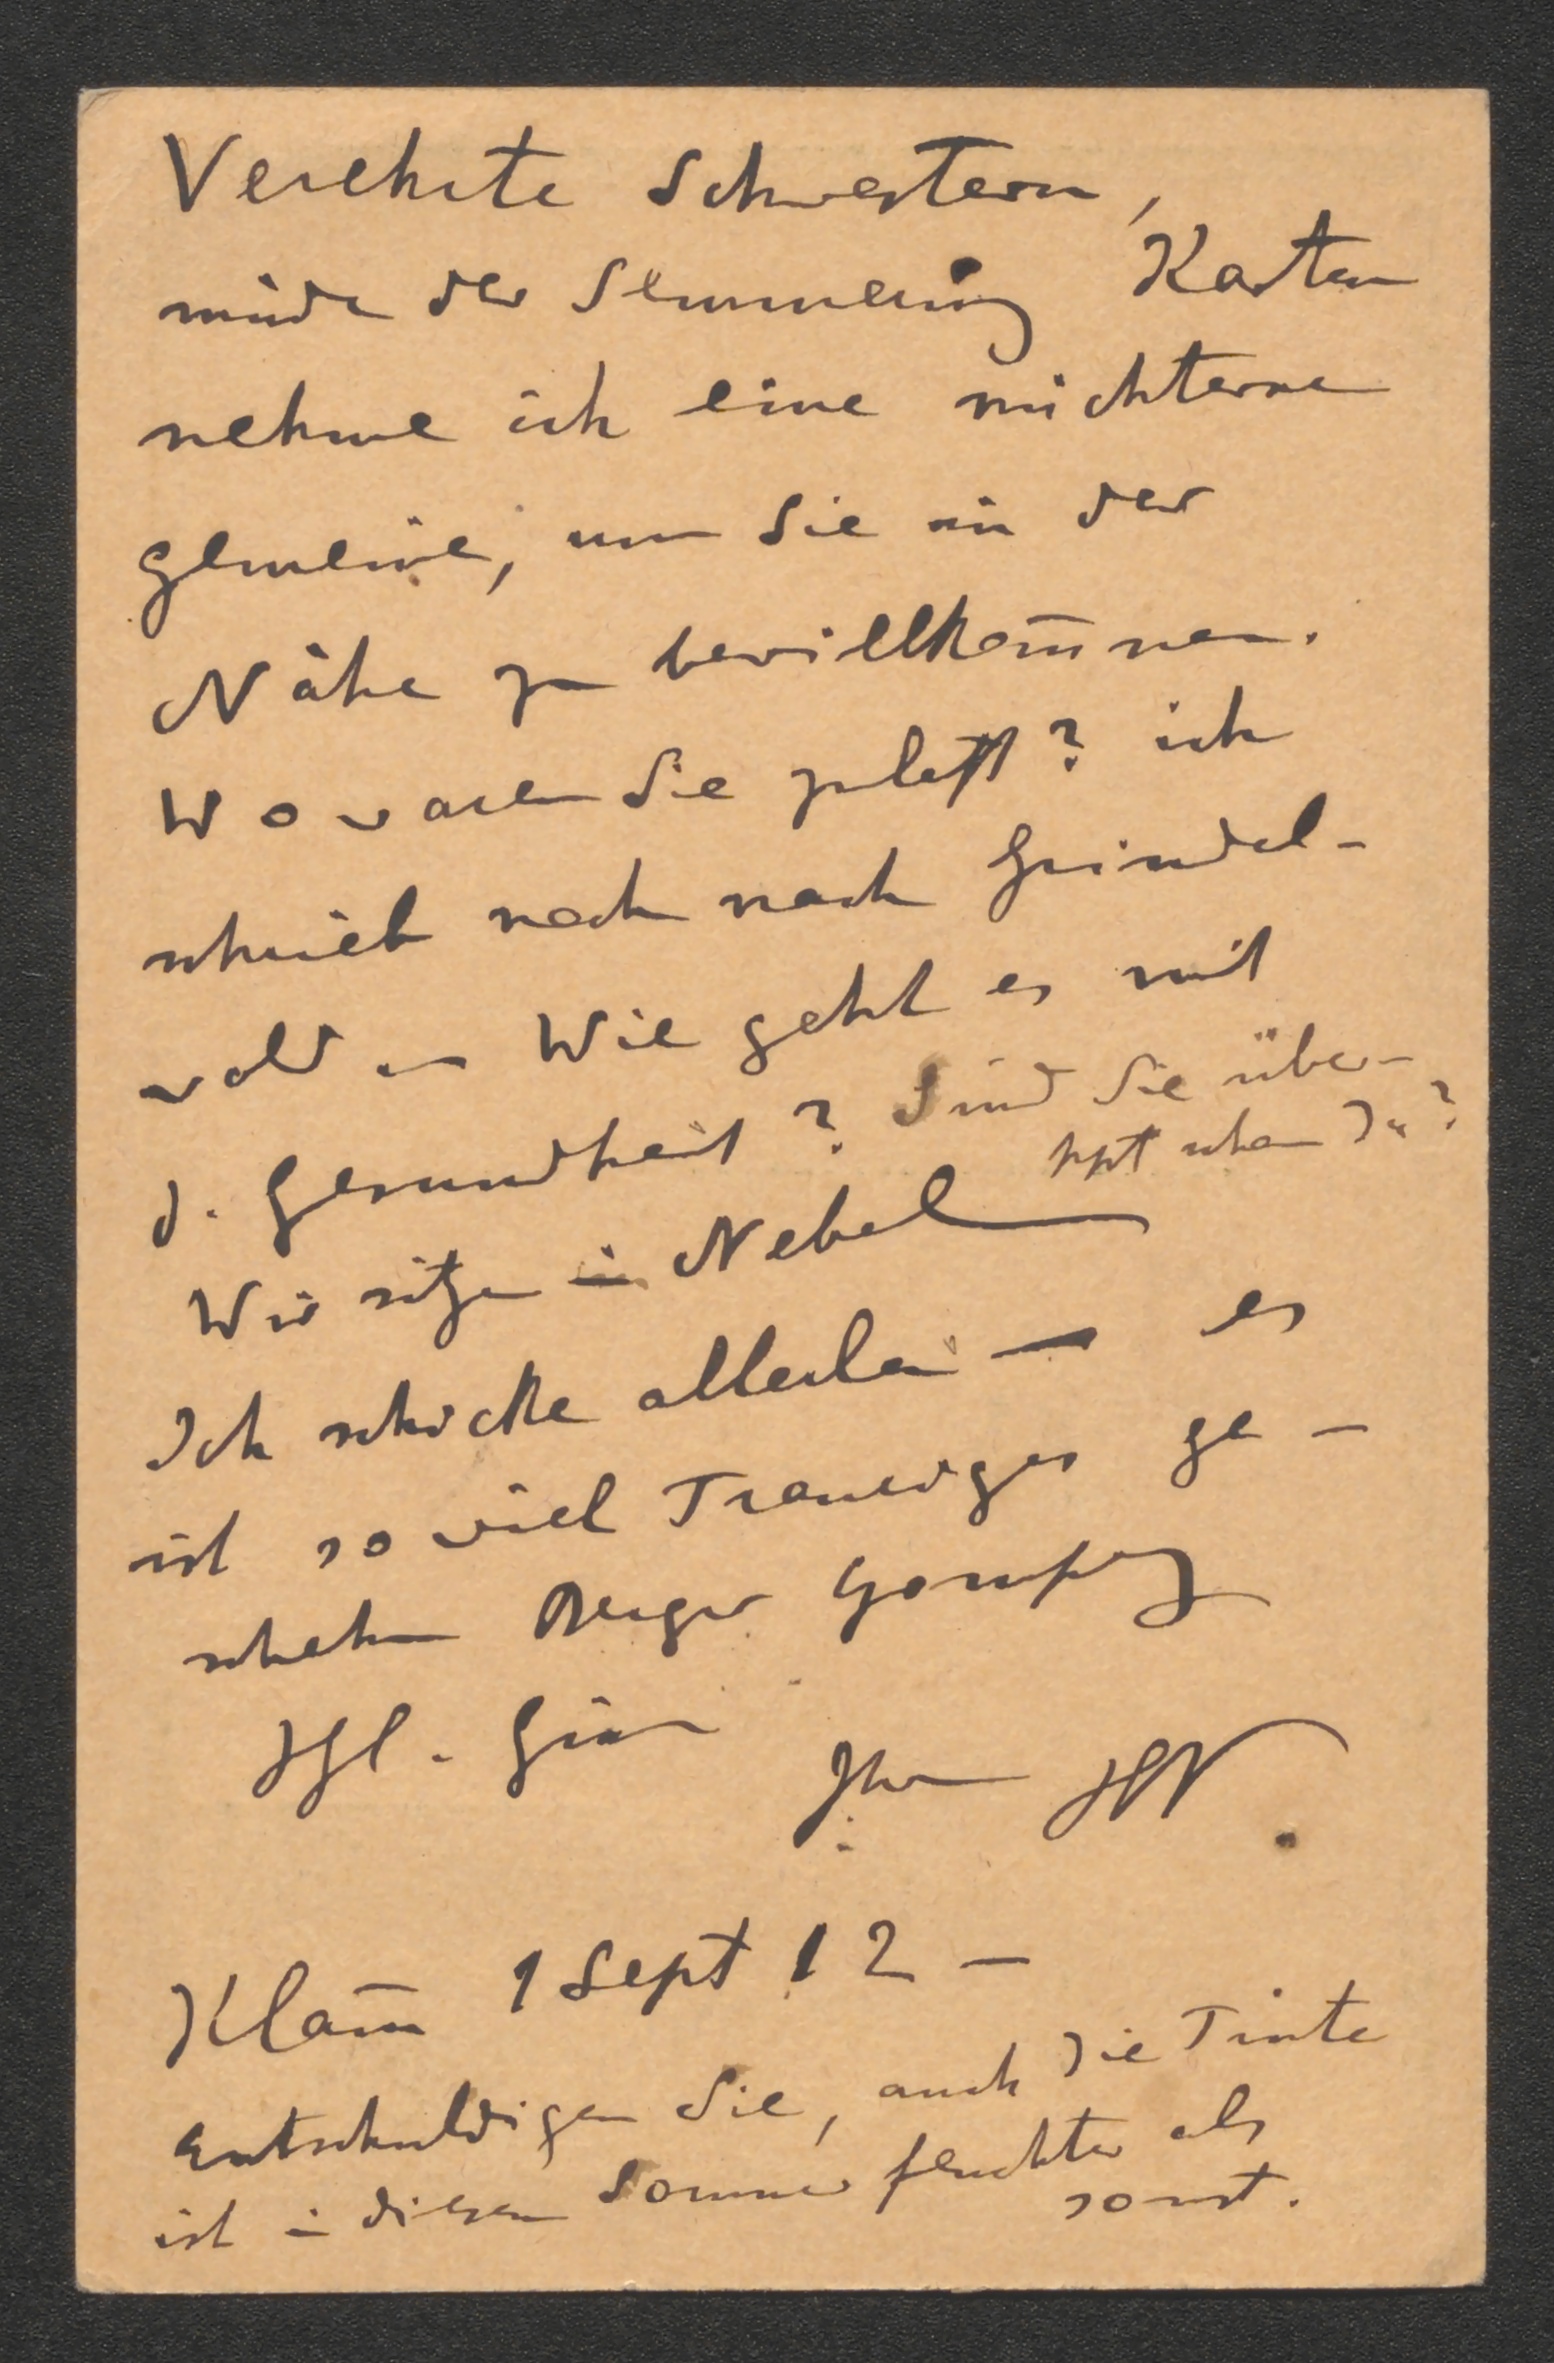 Verehrte Schwestern,
müde der Semmering Karten
nehme ich eine nüchterne
gemeine, um Sie in der
Nähe zu bewillkom̄nen.
Wo waren Sie zuletzt? ich
schrieb noch nach Grindel-
wald – Wie geht es mit
d. Gesundheit? Sind Sie über-
hpt schon da?
Wir sitzen in Nebel
Ich schicke allerlei — es
ist so viel Trauriges ge-
schehen Berger Gomperz
Hzl. Grüße
Ihr
Klam̄ 1 Sept 12 –
Entschuldigen Sie, auch die Tinte
ist in diesem Sommer feuchter als
sonst.